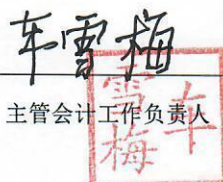 车雪梅
主管会计工作负责人
车雪梅